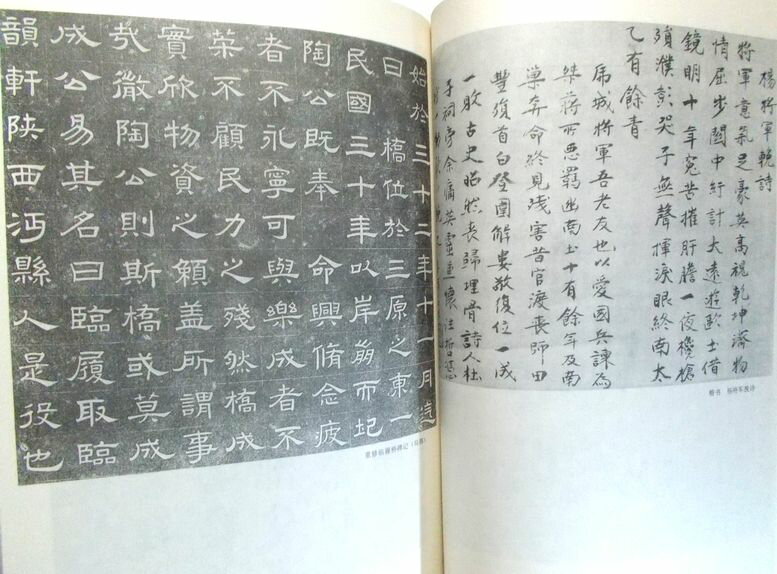 楊將軍輓詩
將軍意氣足豪英高視乾坤滌物
情屈步關中紆計大遠遊歐土借
鏡明十年冤苦摧肝膽一夜欃槍
殞濮彭哭子無聲揮淚眼終南太
乙有餘青
虎城將軍吾老友也以愛國兵諫為
桀蔣所惡羈幽南土十有餘年及南
巢奔命終見殘害昔官渡喪師田
豐傷首白登圍解婁敬復位一成
一敗古史昭然喪歸埋骨詩人杜
子祠旁余痛英靈
楷书 杨将军挽诗
始於三十二年十一月迄
曰 橋位於三原之東一
民國三十年以岸崩而圮
陶公既奉 命興脩念疲
者不永寧可與樂成者不
菜不顧民力之殘然橋成
實欣物資之賴蓋所謂事
哉微陶公則斯橋或莫成
成公易其名曰臨履取臨
韻軒陝西沔縣人是役也
重修临履桥碑记（局部）